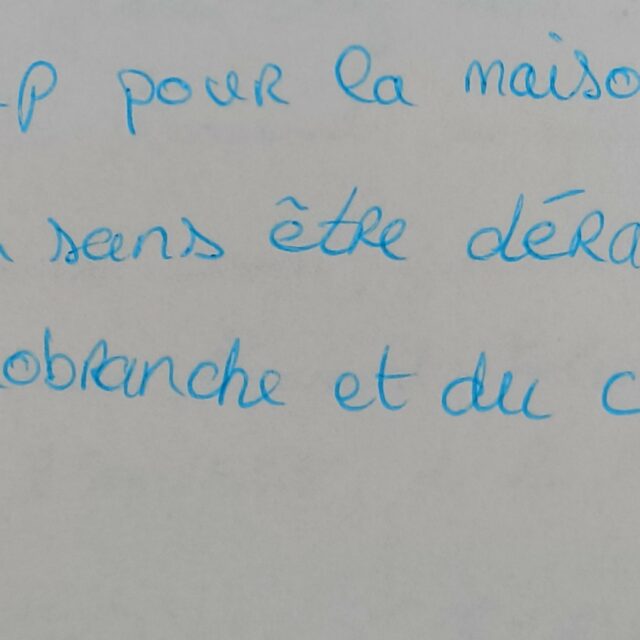 pour la maiso
sans être déra
obranche et du c